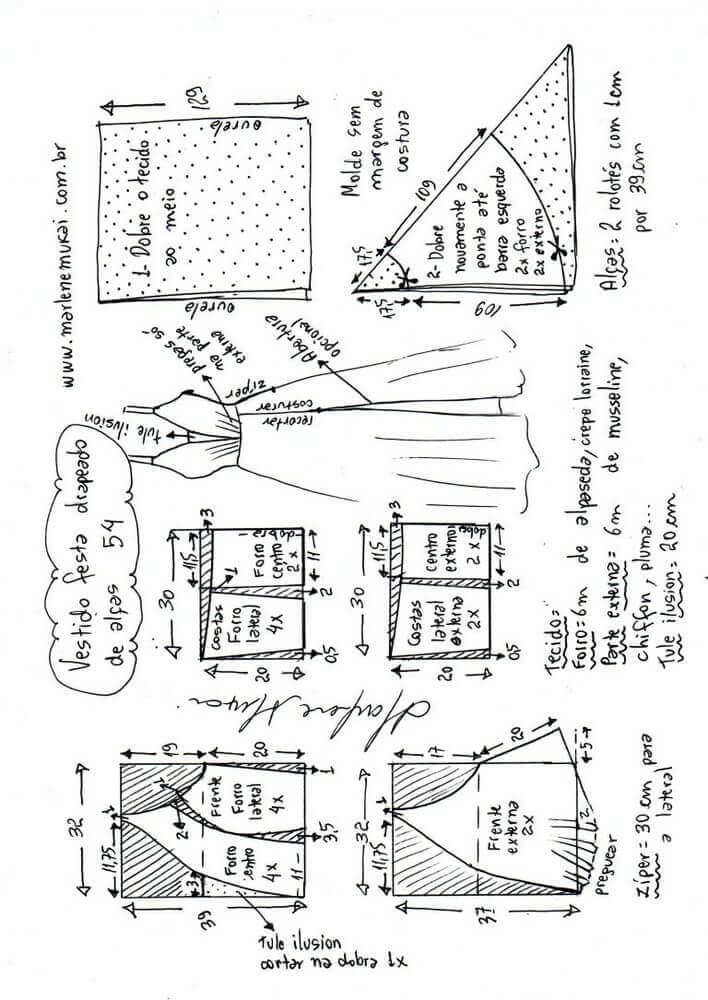 Vestido festa drapeado
de alças 54
www.marlenemukai.com.br
129
ourela
1- Dobre o tecido
ao meio
ourela
Molde sem
margem de
costura
17,5
109
2- Dobre
novamente a
ponta até
barra esquerda
2x forro
2x externo
17,5
109
Alças = 2 rolotés com 1cm
por 39cm
tule ilusion
pregas só
na parte
externa
zíper
Abertura
opcional
costurar
recortar
30
11,5
3
1
Costas
Forro
lateral
4x
Forro
centro
2x
dobra
11
20
0,5
2
30
11,5
3
Costas
lateral
externa
2x
centro
externa
2x
dobra
11
20
0,5
2
Tecido=
Forro= 6m de alpaseda, crepe lorraine,
Parte externa= 6m de musseline,
chiffon, pluma...
Tule ilusion= 20cm
32
11,75
1
19
20
2
1
3
Frente
Forro
lateral
4x
Forro
centro
4x
11
39
3,5
1
Tule ilusion
cortar na dobra 1x
32
11,75
1
17
20
Frente
externa
2x
37
2
5
preguear
Zíper = 30cm para
a lateral